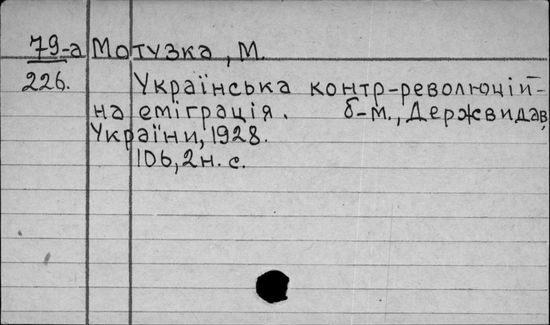 79-а Мотузка, М.
226. Українська контр-революцій-
на еміграція. б-м., Держвидав
України, 1928.
106, 2н. с.